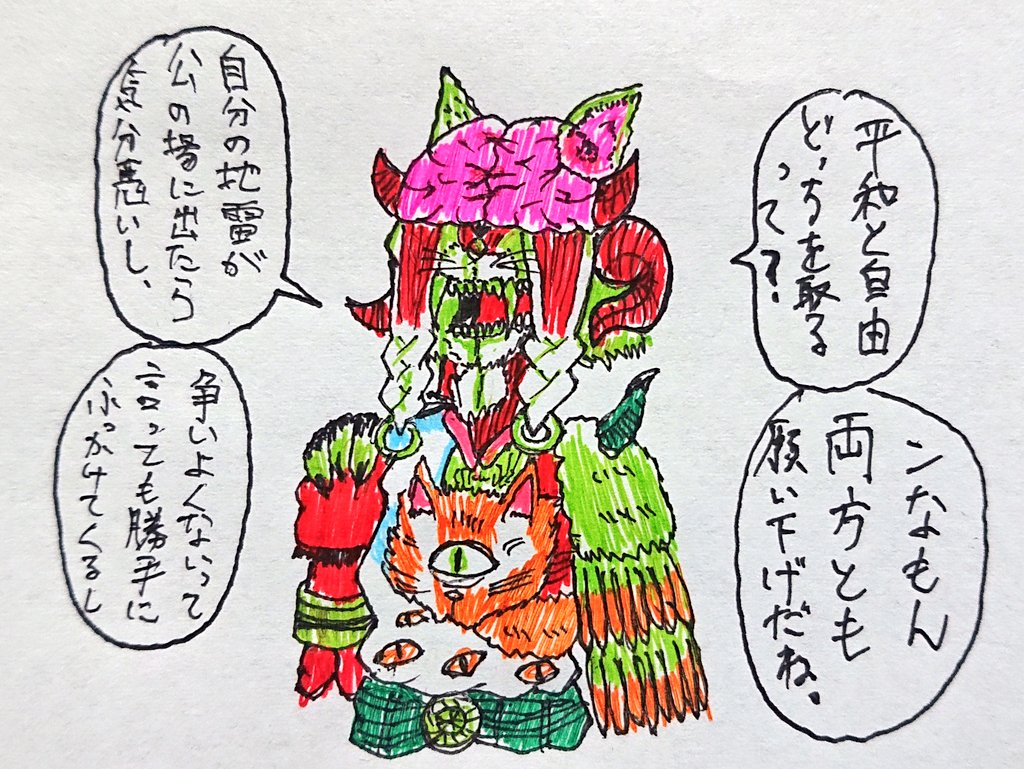 平和と自由
どっちを取る
って?
ンなもん
両方とも
願い下げだね。
自分の地雷が
公の場に出たら
気分悪いし、
争いよくないって
言っても勝手に
ふっかけてくるし